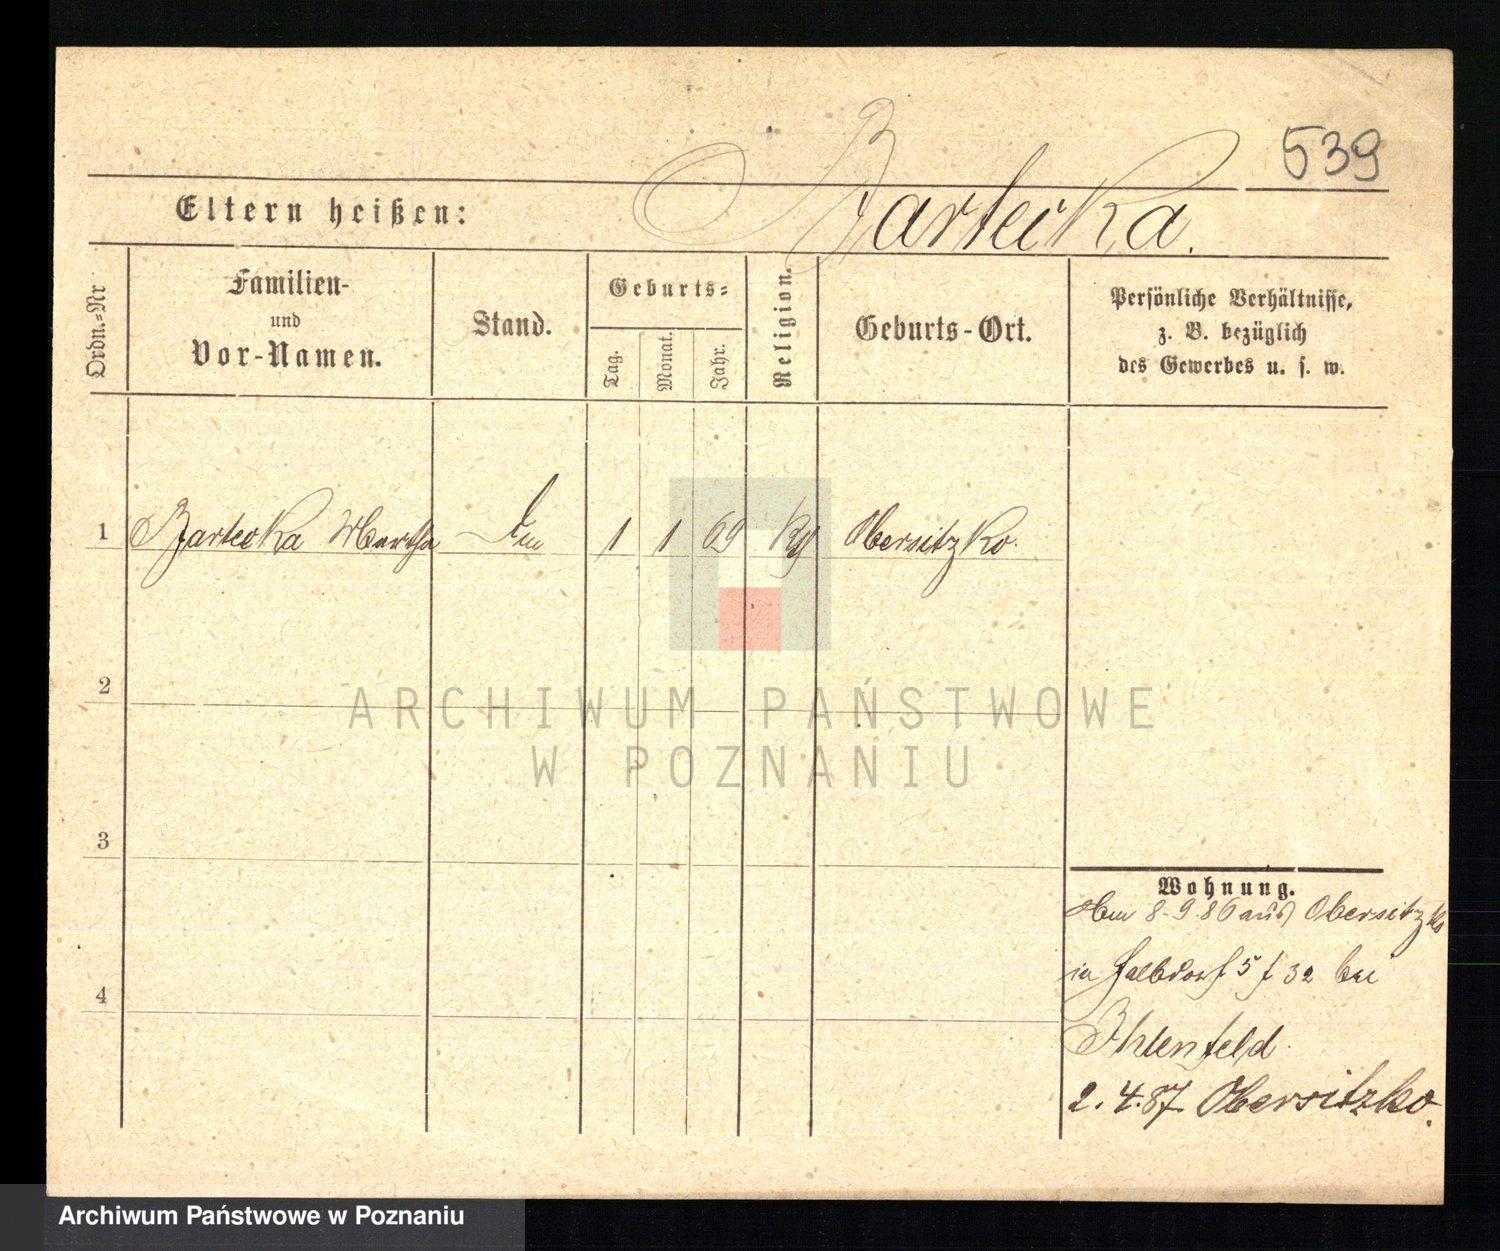 539
Eltern heißen: Bartecka.
Ordn.=Nr
Familien-
und
Vor-Namen.
Stand.
Geburts=
Tag.
Monat.
Jahr.
Religion.
Geburts-Ort.
Persönliche Verhältnisse,
z. B. bezüglich
des Gewerbes u. s. w.
1 Bartecka Martha 1 1 69 Obersitzko.
2
3
4
ARCHIWUM PAŃSTWOWE
W POZNANIU
Wohnung.
8-9.86 aus Obersitzko
in Halbdorf 5 32 bei
Ihlenfeld.
2.4.87. Obersitzko.
Archiwum Państwowe w Poznaniu